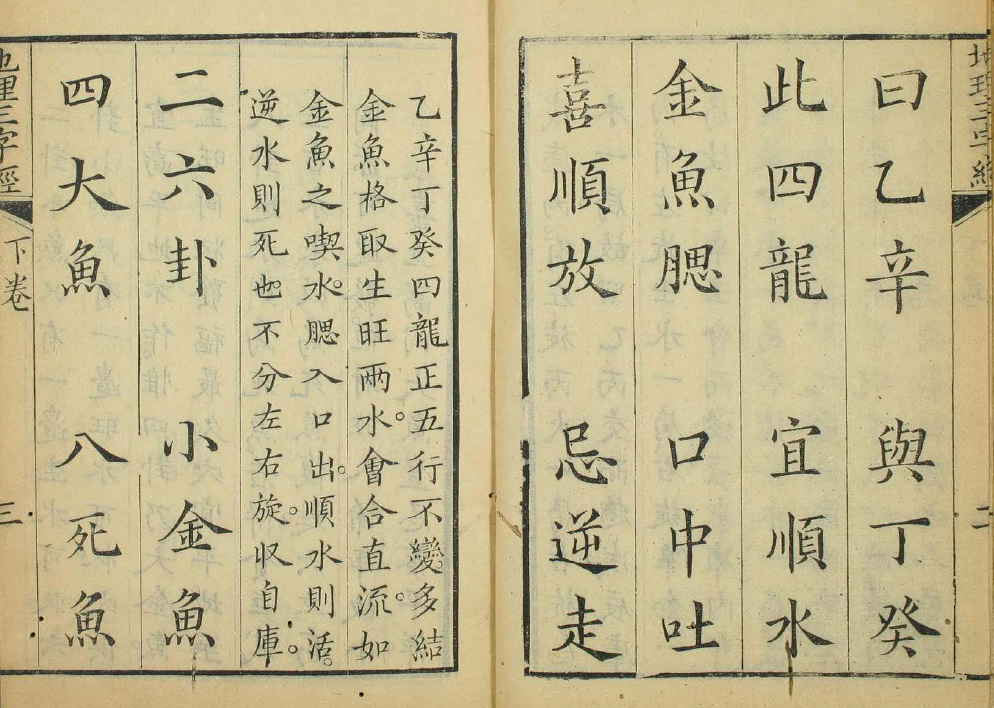 地理三字經
二
曰乙辛 與丁癸
此四龍 宜順水
金魚腮 口中吐
喜順放 忌逆走
乙辛丁癸四龍正五行不變多結
金魚格取生旺兩水會合直流如
金魚之喫水腮入口出順水則活
逆水則死也不分左右旋收自庫
二六卦 小金魚
四大魚 八死魚
地理三字經
下卷
三